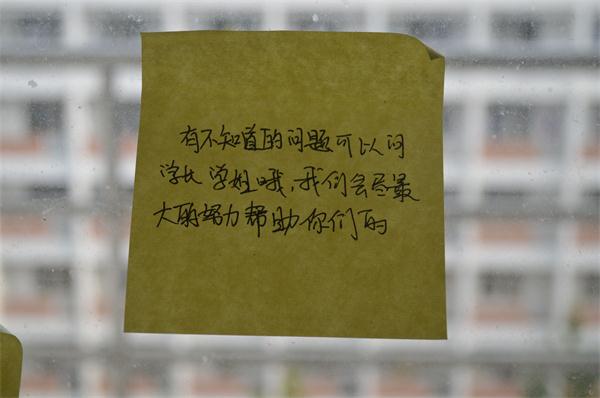 有不知道的问题可以问
学长学姐哦,我们会尽最
大的努力帮助你们的